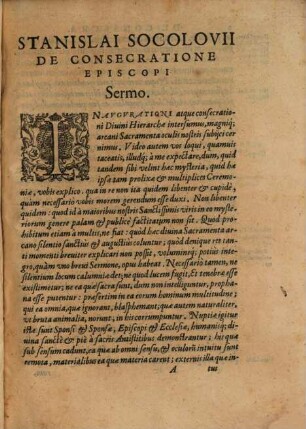 STANISLAI SOCOLOVII
DE CONSECRATIONE
EPISCOPI
Sermo.
INAVGVRATIONI atque consecrationi
Diuini Hierarchæ intersumus, magnique
arcani Sacramenta oculis nostris subijci cernimus.
Video autem vos loqui, quamuis
taceatis, illudque à me expectare, dum, quid
tandem sibi velint hæc mysteria, quid hæc
ipsa tam prolixa & multiplex Ceremonia,
vobis explico. qua in re non ita quidem libenter & cupidè,
quàm necessariò vobis morem gerendum esse duxi. Non libenter
quidem: quod id à maioribus nostris Sanctissimis viris in eo mysteriorum
genere palam & publicè factitatum non sit. Quod prohibitum
etiam à multis, ne fiat: quod hæc diuina Sacramenta arcano
silentio sanctiùs & augustiùs coluntur; quod denique res tantæ
momenti breuiter explicari non possit, voluminique potiùs integro,
quàm vno breui Sermone, opus habeat. Necessariò tamen, ne
silentium locum calumniæ det: ne quod lucem fugit, id tenebra esse
existimetur; ne ea quæ sacra sunt, dum non intelliguntur, prophana
esse putentur: præsertim in ea eorum hominum multitudine;
qui ea omnia, quæ ignorant, blasphemant; quæ autem naturaliter,
vt bruta animalia, norunt, in his corrumpuntur. Nuptiæ igitur
istæ sunt Sponsi & Sponsæ, Episcopi & Ecclesiæ, humanisque;
diuina sanctè & piè à sacris Antistitibus demonstrantur; his quæ
sub sensum cadunt, ea quæ ab omni sensu, & oculorum intuitu sunt
remota, materialibus ea quæ materia carent; externis illa quæ in-
A
tus